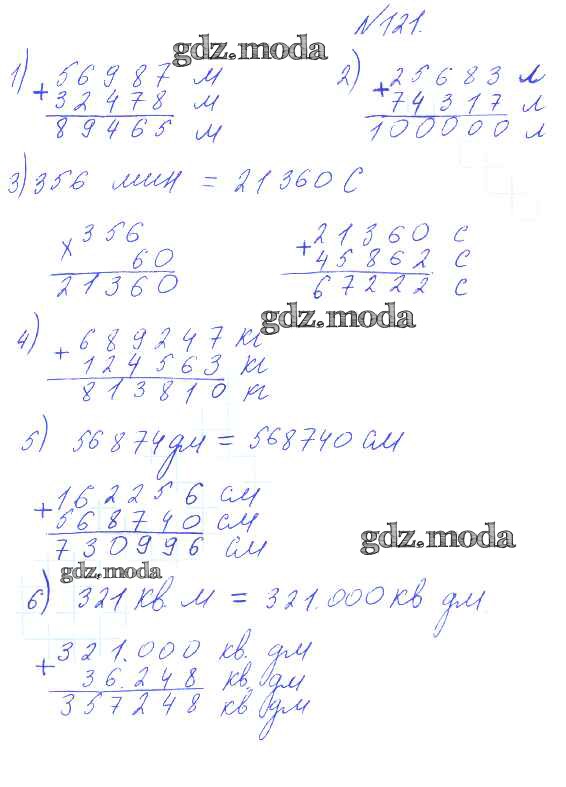 №121.
gdz.moda
1) 56987 м
+ 32478 м
89465 м
2) 25683 л
+ 74317 л
100000 л
3) 356 мин = 21360 с
356
× 60
21360
21360 с
+ 45862 с
67222 с
gdz.moda
4) 689247 кг
+ 124563 кг
813810 кг
5) 56874 дм = 568740 см
162256 см
+ 568740 см
730996 см
gdz.moda
gdz.moda
6) 321 кв. м = 321.000 кв дм
321.000 кв. дм
+ 36.248 кв. дм
357248 кв дм